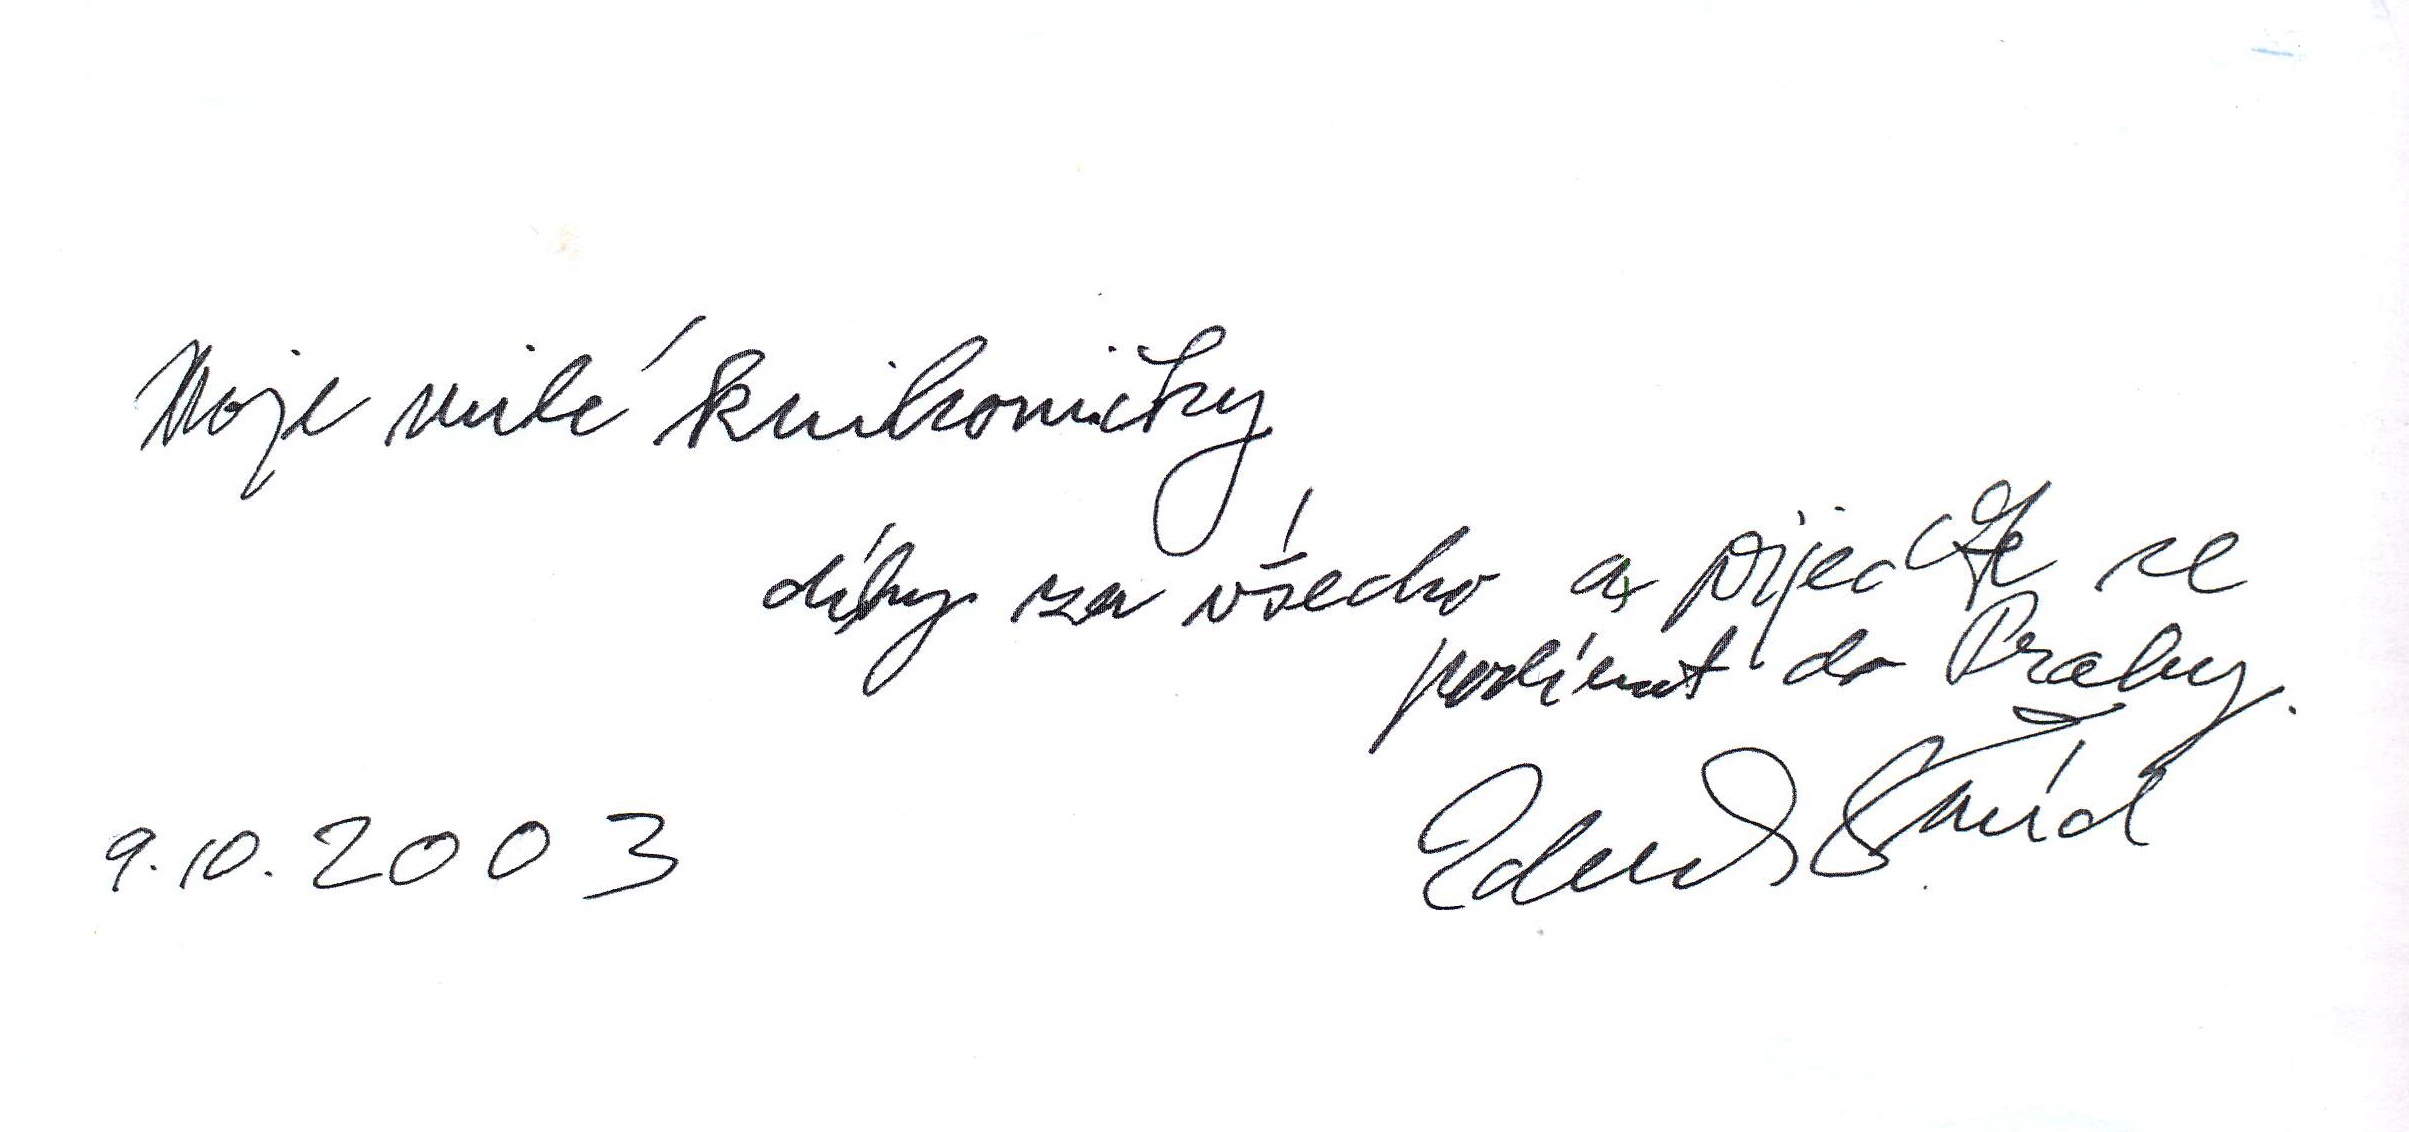 Moje milé knihovničky
díky za všecko a přijeďte se
podívat do Prahy.
9.10.2003
Eduard Šmíd